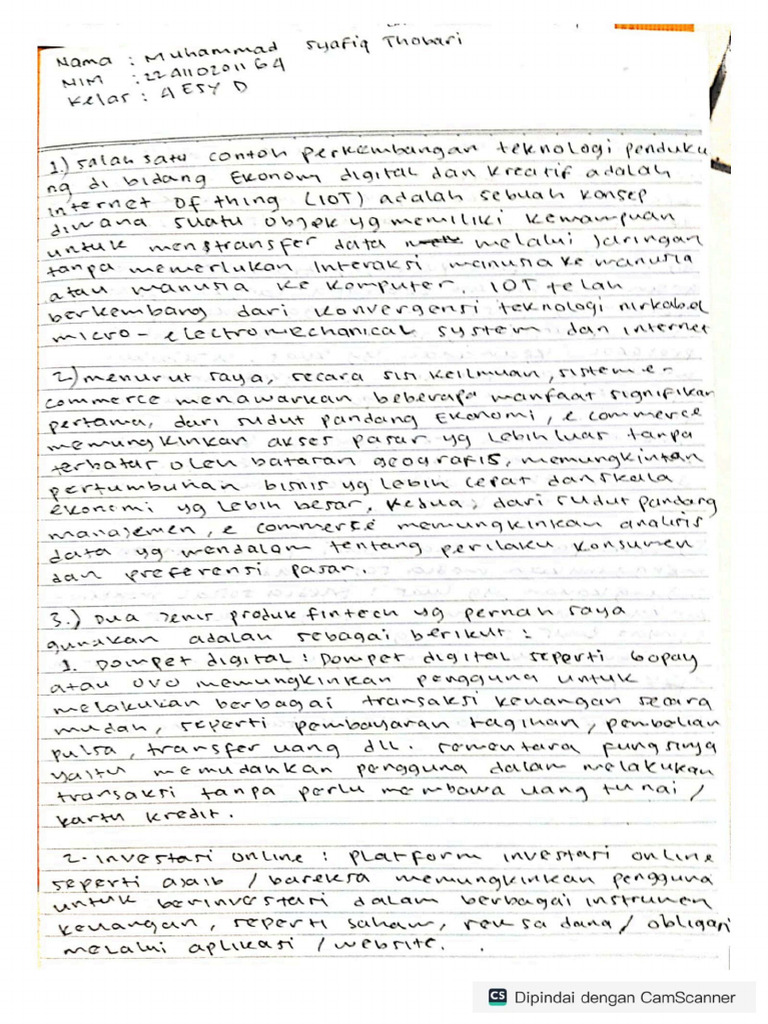 Nama : Muhammad Syafiq Thohari
NIM : 22A110201164
Kelas : 4 ESY D
1.) salah satu contoh perkembangan teknologi penduku
ng di bidang Ekonomi digital dan kreatif adalah
internet of thing (IOT) adalah sebuah konsep
dimana suatu objek yg memiliki kemampuan
untuk menstransfer data melalui jaringan
tanpa memerlukan interaksi manusia ke manusia
atau manusia ke komputer. IOT telah
berkembang dari konvergensi teknologi nirkabel
micro-electromechanical system dan internet
2) menurut saya, secara sisi keilmuan, sistem e-
commerce menawarkan beberapa manfaat signifikan
pertama, dari sudut pandang Ekonomi, e commerce
memungkinkan akses pasar yg lebih luas tanpa
terbatas oleh batasan geografis, memungkinkan
pertumbuhan bisnis yg lebih cepat dan skala
ekonomi yg lebih besar. Kedua, dari sudut pandang
manajemen, e commerce memungkinkan analisis
data yg mendalam tentang perilaku konsumen
dan preferensi pasar.
3.) Dua jenis produk fintech yg pernah saya
gunakan adalah sebagai berikut :
1. Dompet digital : Dompet digital seperti Gopay
atau ovo memungkinkan pengguna untuk
melakukan berbagai transaksi keuangan secara
mudah, seperti pembayaran tagihan, pembelian
pulsa, transfer uang dll. sementara fungsinya
yaitu memudahkan pengguna dalam melakukan
transaksi tanpa perlu membawa uang tunai /
kartu kredit.
2. Investasi online : platform investasi online
seperti ajaib / bareksa memungkinkan pengguna
untuk berinvestasi dalam berbagai instrumen
keuangan, seperti saham, reksa dana / obligasi
melalui aplikasi / website.
CS Dipindai dengan CamScanner